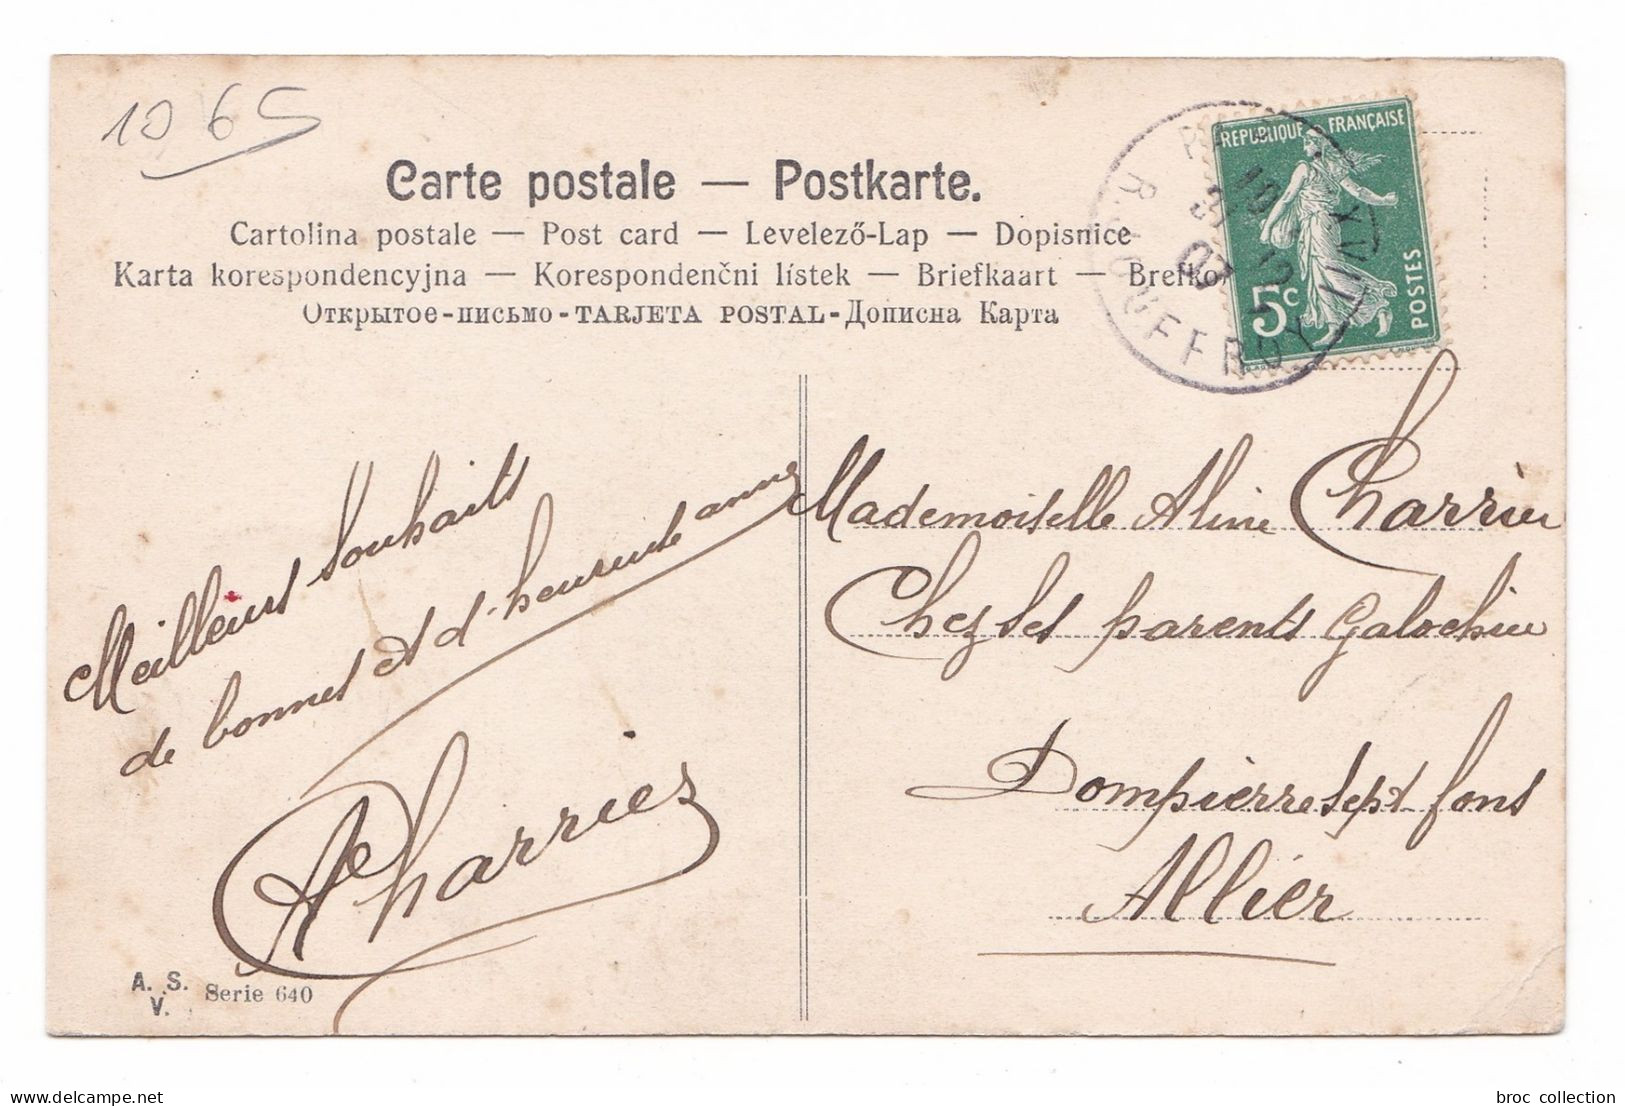 1065
Carte postale — Postkarte.
Cartolina postale — Post card — Levelező-Lap — Dopisnice
Karta korespondencyjna — Korespondenční lístek — Briefkaart — Brefko
Открытое-письмо - TARJETA POSTAL - Дописна Карта
REPUBLIQUE FRANÇAISE
POSTES
5c
XVII
R. JOUFFROY
Meilleurs souhaits
de bonnes et d'heureuse année
A Charrier
Mademoiselle Aline Charrier
Chez ses parents Galochier
Dompierre sept fons
Allier
A. S.
V.
Serie 640
broc collection